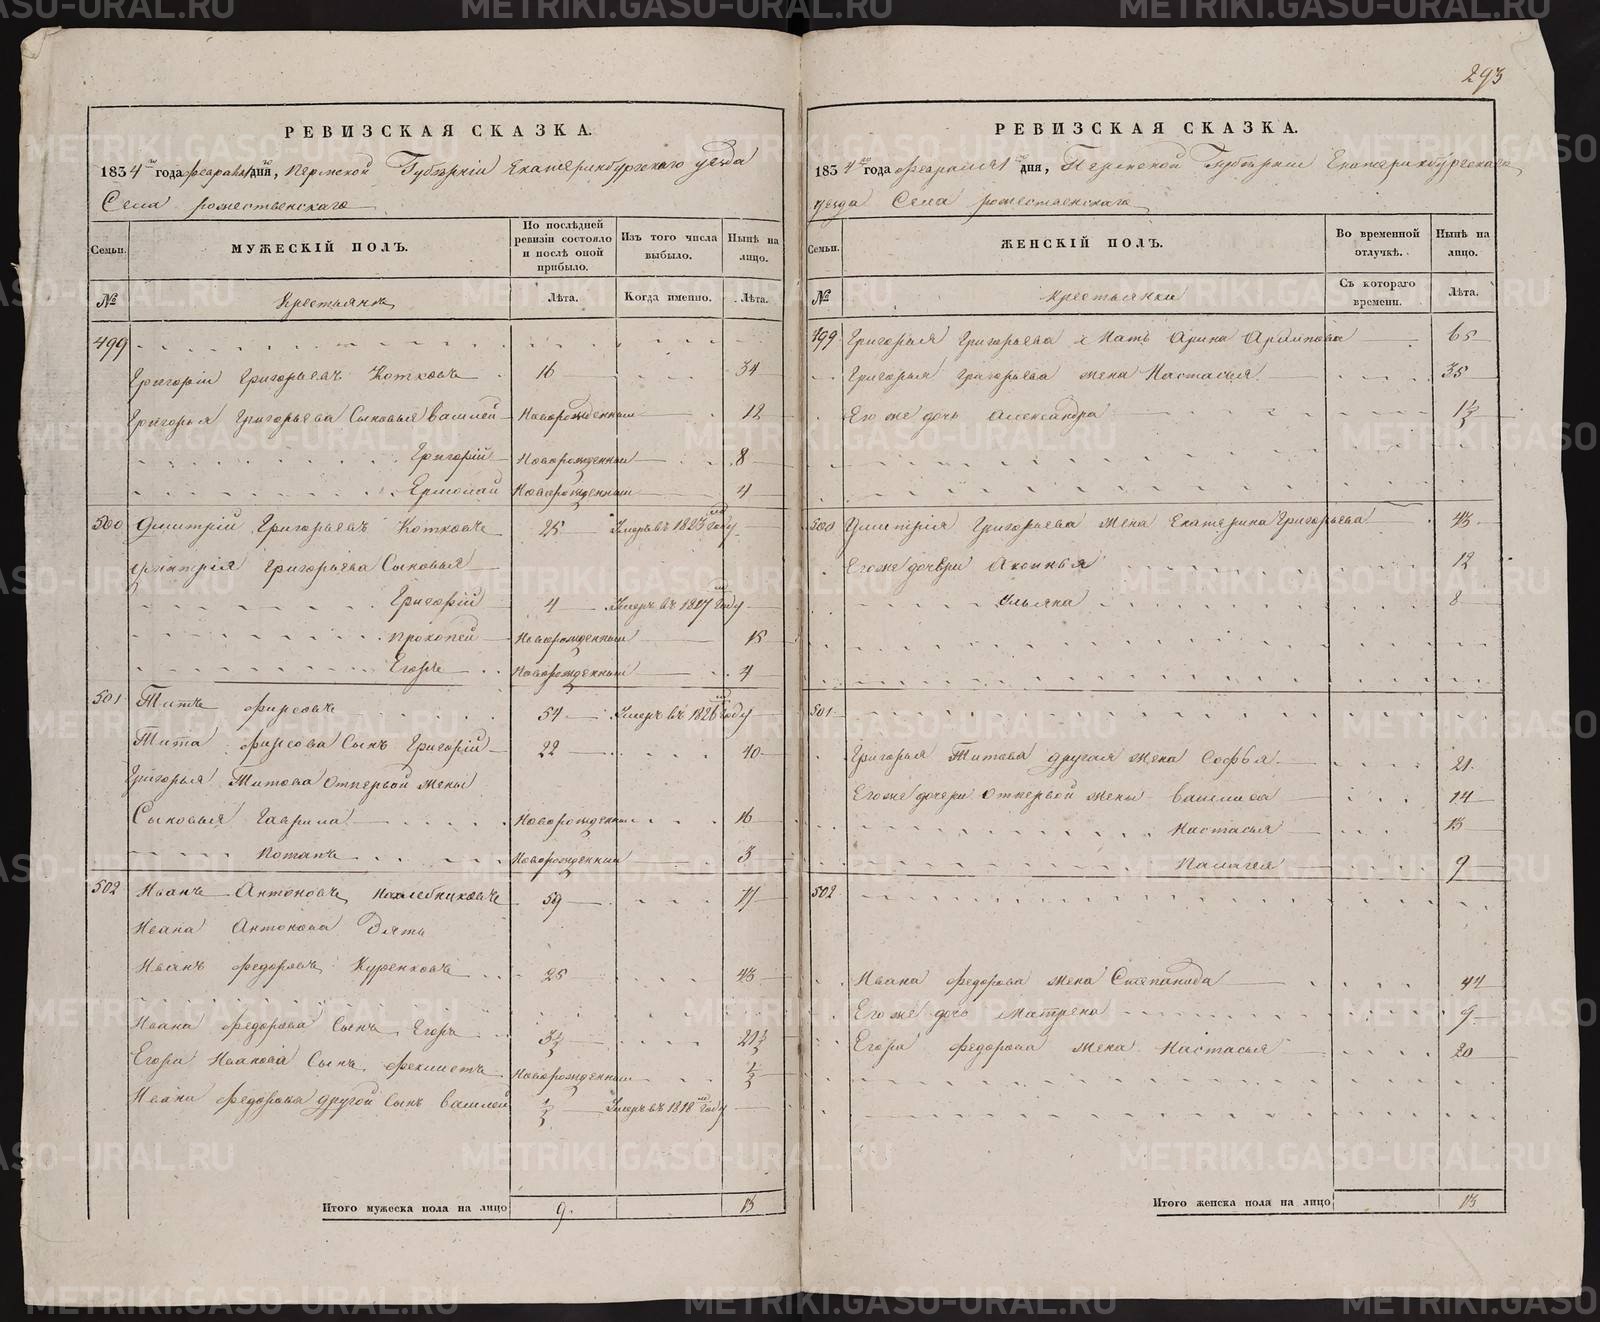 293
РЕВИЗСКАЯ СКАЗКА.
1834 го года февраля 1 го дня, Пермской Губерніи Екатеринбургскаго уезда
Села рожественскаго
Семьи.
МУЖЕСКІЙ ПОЛЪ.
По послѣдней ревизіи состояло и послѣ оной прибыло.
Изъ того числа выбыло.
Нынѣ на лицо.
№
Крестьянъ
Лѣта.
Когда именно.
Лѣта.
499
Григорій Григорьевъ Котковъ 16 34
Григорья Григорьева Сыновья Василей Новорожденный 12
Григорій Новорожденный 8
Ермолай Новорожденный 4
500 Дмитрій Григорьевъ Котковъ 25 Умеръ въ 1823 году
Дмитрія Григорьева Сыновья
Григорій 4 Умеръ въ 1827 году
Прокопей Новорожденный 15
Егоръ Новорожденный 4
501 Титъ Фирсовъ 54 Умеръ въ 1826 году
Тита Фирсова Сынъ Григорій 22 40
Григорья Титова От первой жены
Сыновья Гаврила Новорожденны 16
Потапъ Новорожденный 3
502 Иванъ Антоновъ 59 77
Ивана Антонова Зять
Иванъ Федоровъ Куренковъ 25 43
Ивана Федорова Сынъ Егоръ 3½ 21½
Егора Иванова Сынъ Феклистъ Новорожденный ½
Ивана Федорова другой Сынъ Василей ½ Умеръ въ 1818 году
Итого мужеска пола на лицо 9. 13
РЕВИЗСКАЯ СКАЗКА.
1834 го года февраля 1 го дня, Пермской Губерніи Екатеринбургскаго
уезда Села рожественскаго
Семьи.
ЖЕНСКІЙ ПОЛЪ.
Во временной отлучкѣ.
Нынѣ на лицо.
№
Крестьянки
Съ котораго времени.
Лѣта.
499 Григорья Григорьева Мать Арина 65
Григорья Григорьева жена Настасья 35
Его же дочь Александра 1½
500 Дмитрія Григорьева жена Екатерина Григорьева 43
Его же дочери Аксинья 12
Ульяна 8
501
Григорья Титова другая жена Софья 21.
Его же дочери От первой жены Василиса 14
Настасья 13
Палагея 9
502
Ивана Федорова жена Степанида 44
Его же дочь Матрена 9
Егора Федорова жена Настасья 20
Итого женска пола на лицо 13
METRIKI.GASO-URAL.RU